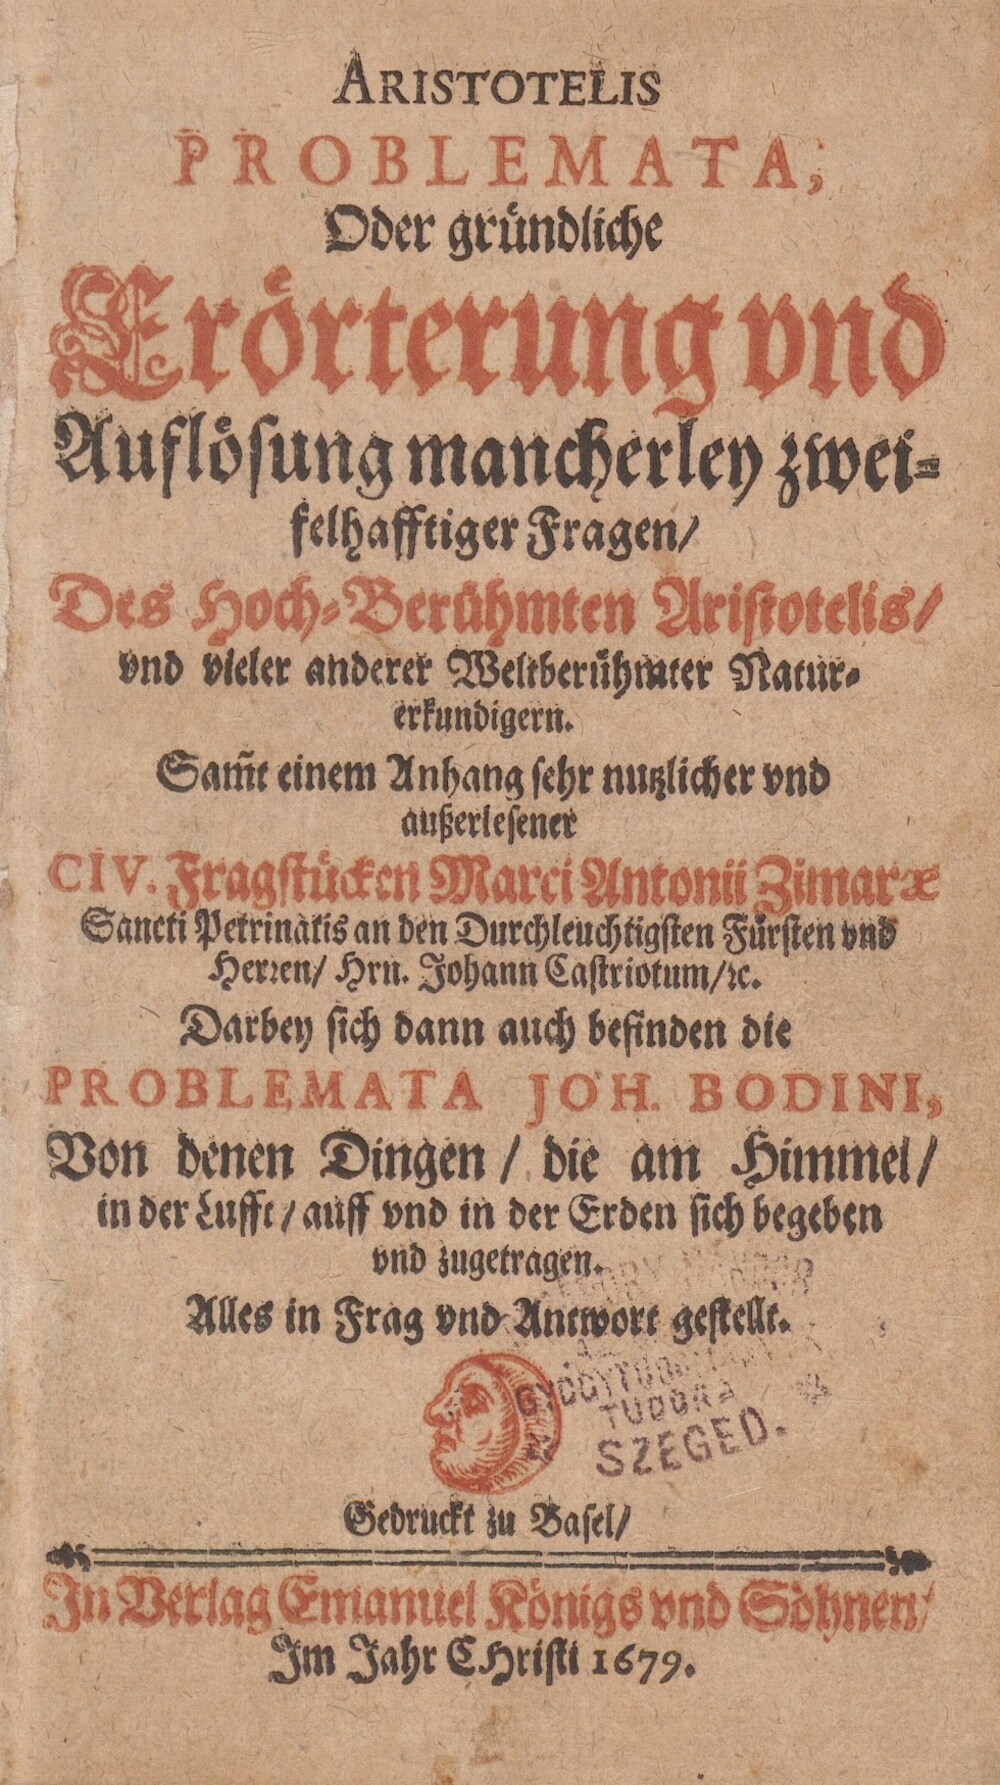 ARISTOTELIS
PROBLEMATA,
Oder gründliche
Erörterung vnd
Auflösung mancherley zwei=
felhafftiger Fragen/
Des Hoch=Berühmten Aristotelis/
vnd vieler anderer Weltberühmter Natur=
erkundigern.
Sam̃t einem Anhang sehr nutzlicher vnd
außerlesener
CIV. Fragstücken Marci Antonii Zimaræ
Sancti Petrinatis an den Durchleuchtigsten Fürsten vnd
Herꝛen/ Hrn. Johann Castriotum/ꝛc.
Darbey sich dann auch befinden die
PROBLEMATA JOH. BODINI,
Von denen Dingen/ die am Himmel/
in der Lufft/ auff vnd in der Erden sich begeben
vnd zugetragen.
Alles in Frag vnd Antwort gestellt.
TUDORA
SZEGED.
Gedruckt zu Basel/
In Verlag Emanuel Königs vnd Söhnen/
Im Jahr CHristi 1679.